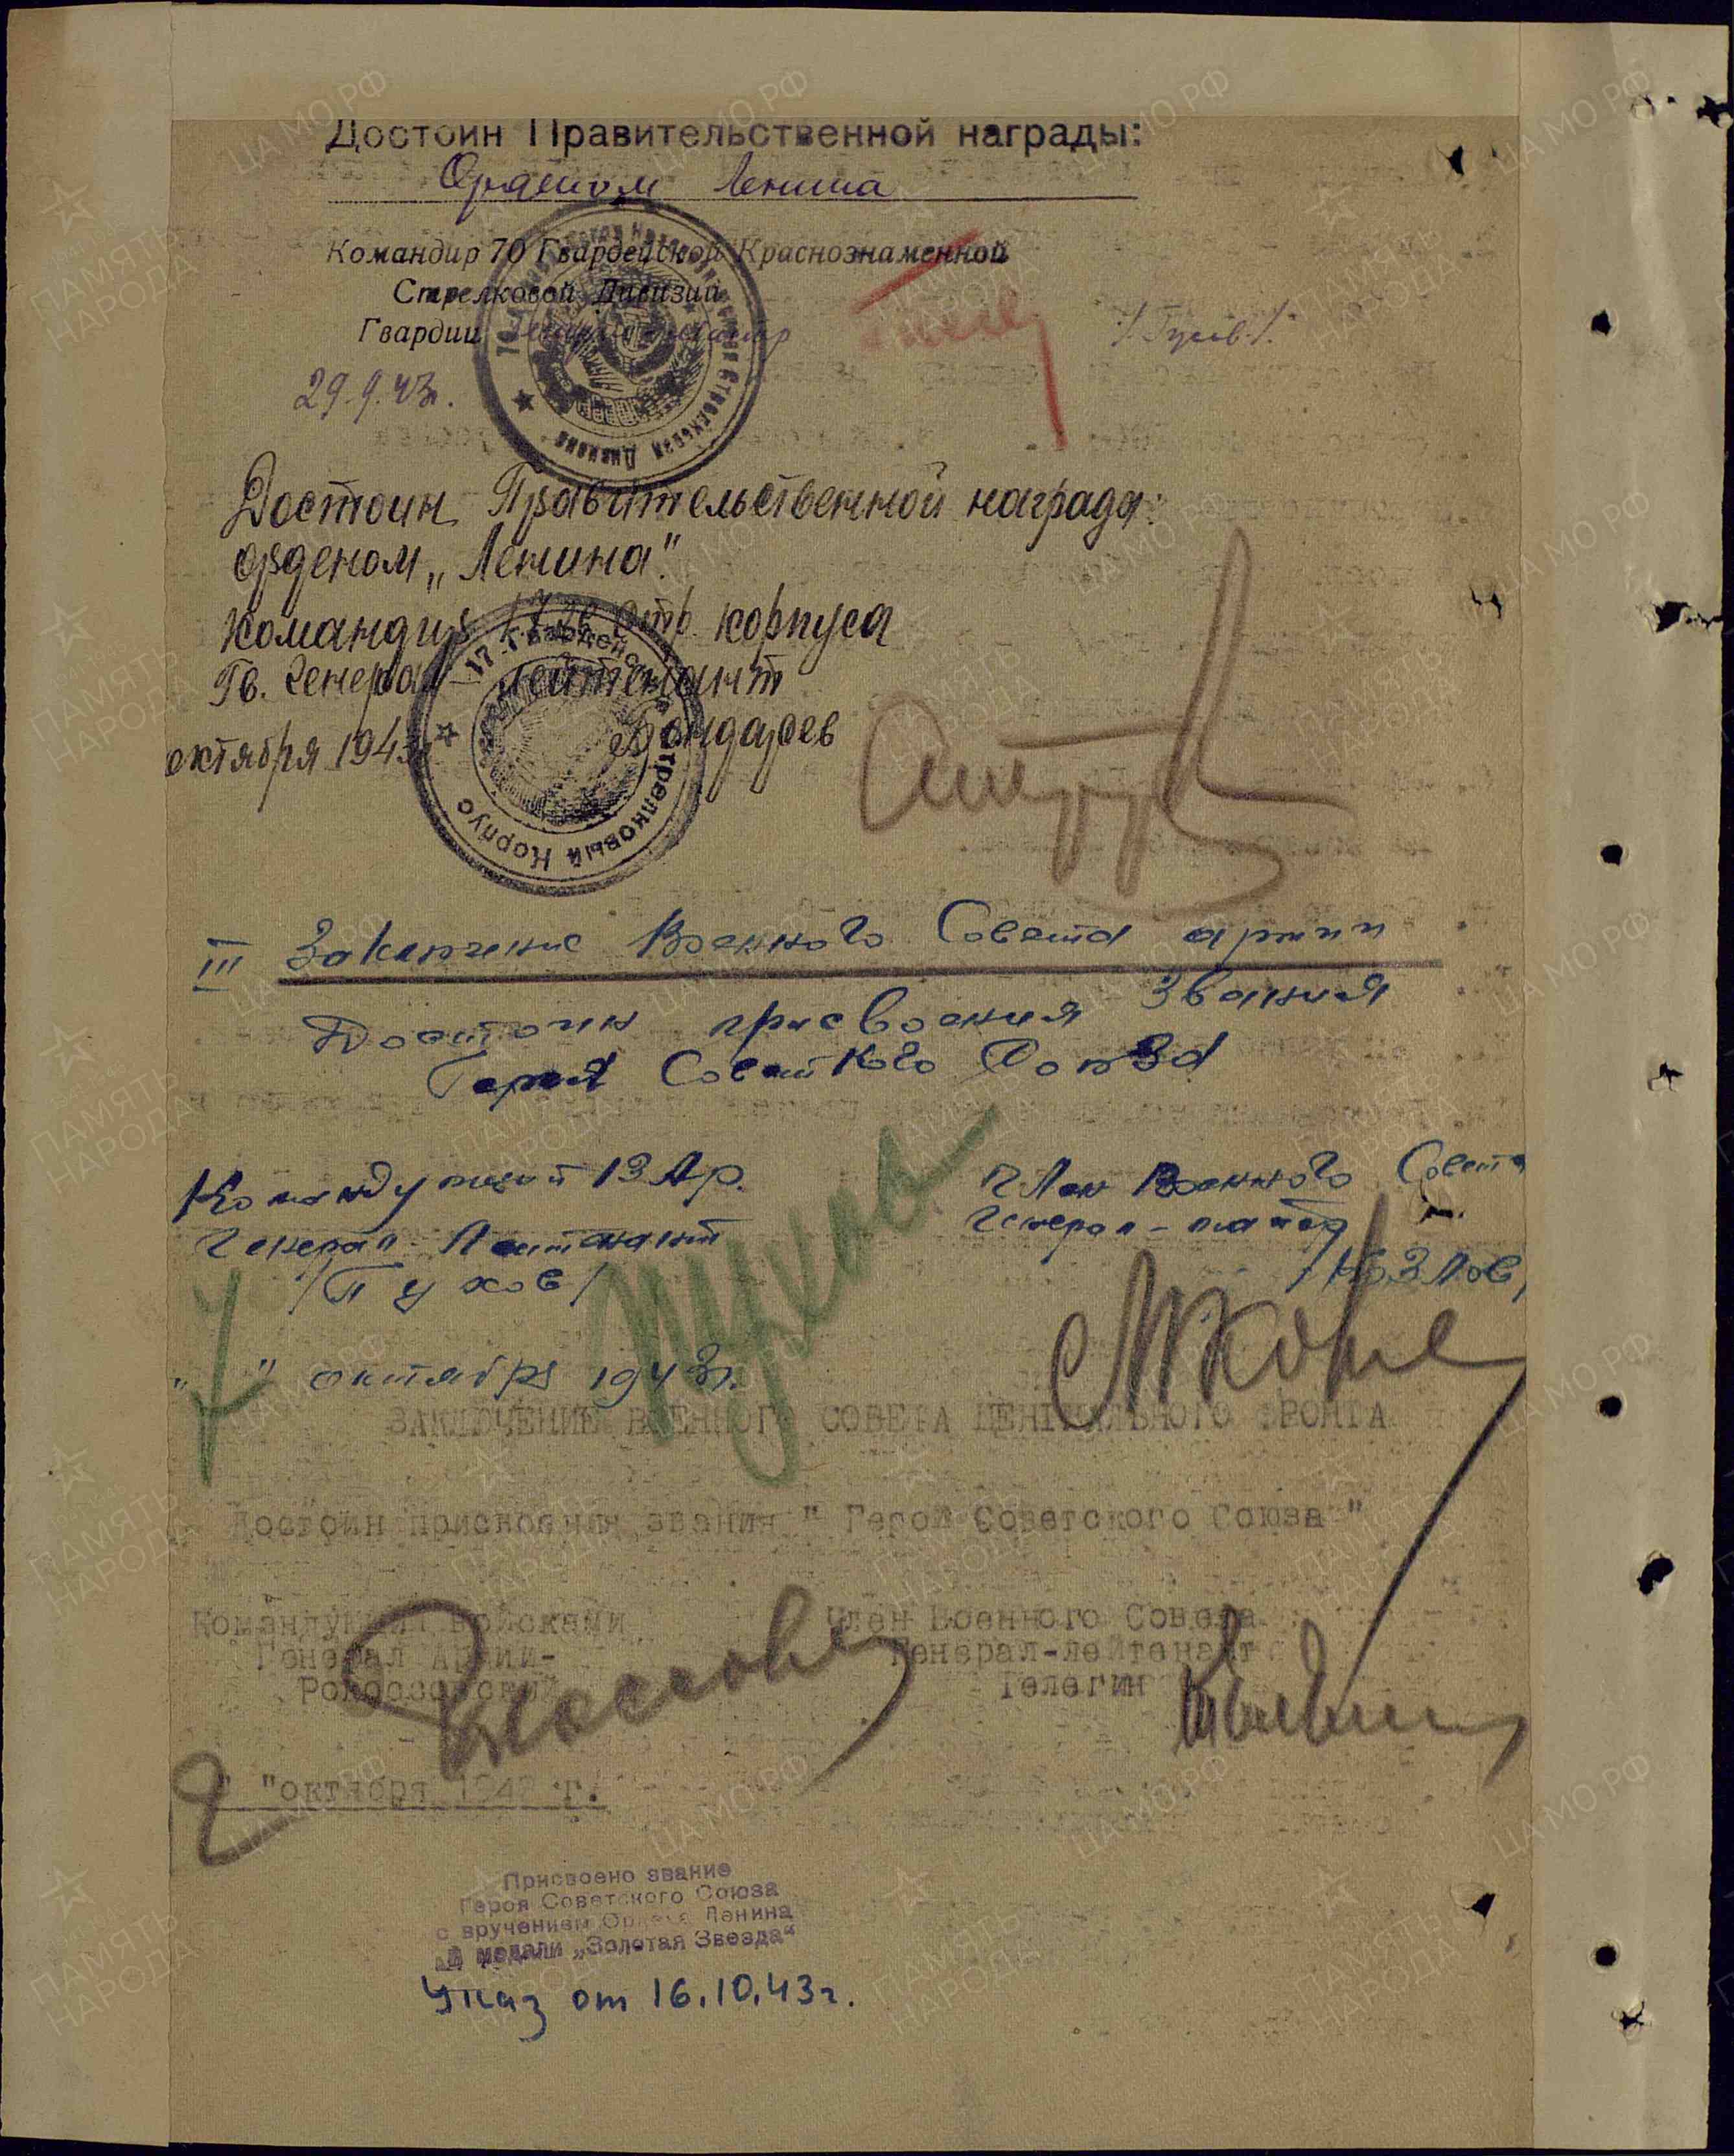 Достоин Правительственной награды:
Орденом Ленина
Командир 70 Гвардейской Краснознаменной
Стрелковой Дивизии
Гвардии
/Гусев/
29.9.43г.
Достоин Правительственной награды:
орденом „Ленина".
Командир 17 Гв. Стр. корпуса
Гв. Генерал-лейтенант
Бондарев
октября 1943
17 Гвардейский Стрелковый Корпус
III Заключение Военного Совета армии
Достоин присвоения звания
Героя Советского Союза
Командующий 13 Ар. Член Военного Совета
Генерал-Лейтенант Генерал-майор
/Пухов/ /Козлов/
Пухов
7
" " октября 1943г.
ЗАКЛЮЧЕНИЕ ВОЕННОГО СОВЕТА ЦЕНТРАЛЬНОГО ФРОНТА
Достоин присвоения звания " Герой Советского Союза "
Командующий Войсками Член Военного Совета
Генерал Армии- Генерал-лейтенант
Рокоссовский Телегин
" "октября 1943 г.
Присвоено звание
Героя Советского Союза
с вручением Ордена Ленина
и медали „Золотая Звезда"
Указ от 16.10.43г.
ЦА МО РФ
ПАМЯТЬ НАРОДА